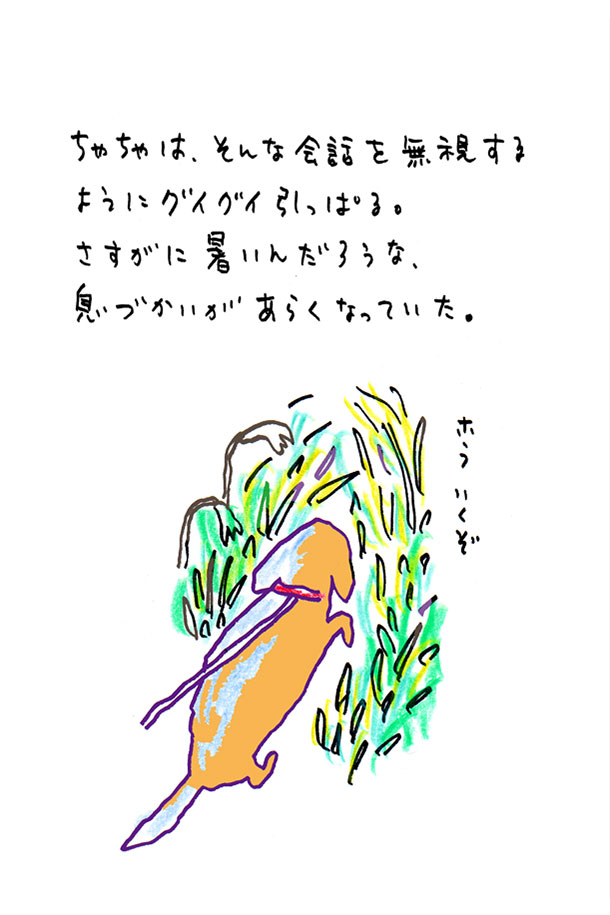 ちゃちゃは、そんな会話を無視する
ようにグイグイ引っぱる。
さすがに暑いんだろうな、
息づかいがあらくなっていた。
ホラ いくぞ